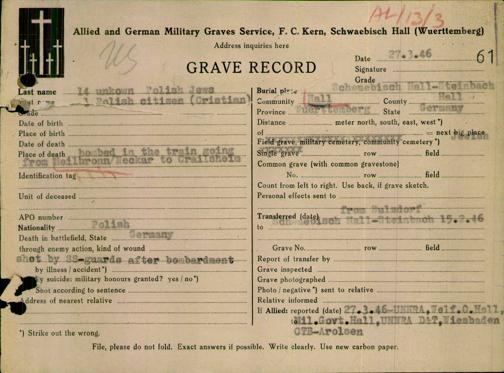 AL/13/3
US
Allied and German Military Graves Service, F. C. Kern, Schwaebisch Hall (Wuerttemberg)
Address inquiries here
GRAVE RECORD
Date 27.3.46
61
Signature
Grade
Last name 14 unkown Polish Jews
1 Polish citizen (Cristian)
Grade
Date of birth
Place of birth
Date of death
Place of death bombed in the train going
from Heilbronn/Neckar to Crailsheim
Identification tag
Unit of deceased
APO number
Nationality Polish
Death in battlefield, State Germany
through enemy action, kind of wound
shot by SS-guards after bombardment
by illness / accident*)
by suicide: military honours granted? yes / no*)
Shot according to sentence
Address of nearest relative
*) Strike out the wrong.
Burial place Schwaebisch Hall-Steinbach
Community Hall County Hall
Province Wuerttemberg State Germany
Distance meter north, south, east, west*)
of = next big place
Jewish
Field grave, military cemetery, community cemetery*)
Single grave row field
Common grave (with common gravestone)
No. row field
Count from left to right. Use back, if grave sketch.
Personal effects sent to
from
Transferred (date)
to Schwaebisch Hall-Steinbach 15.2.46
Grave No. row field
Report of transfer by
Grave inspected
Grave photographed
Photo / negative*) sent to relative
Relative informed
If Allied: reported (date) 27.3.46-UNRRA, Welf.O.Hall,
Mil.Govt.Hall, UNRRA D&T, Wiesbaden
CTB-Arolsen
File, please do not fold. Exact answers if possible. Write clearly. Use new carbon paper.